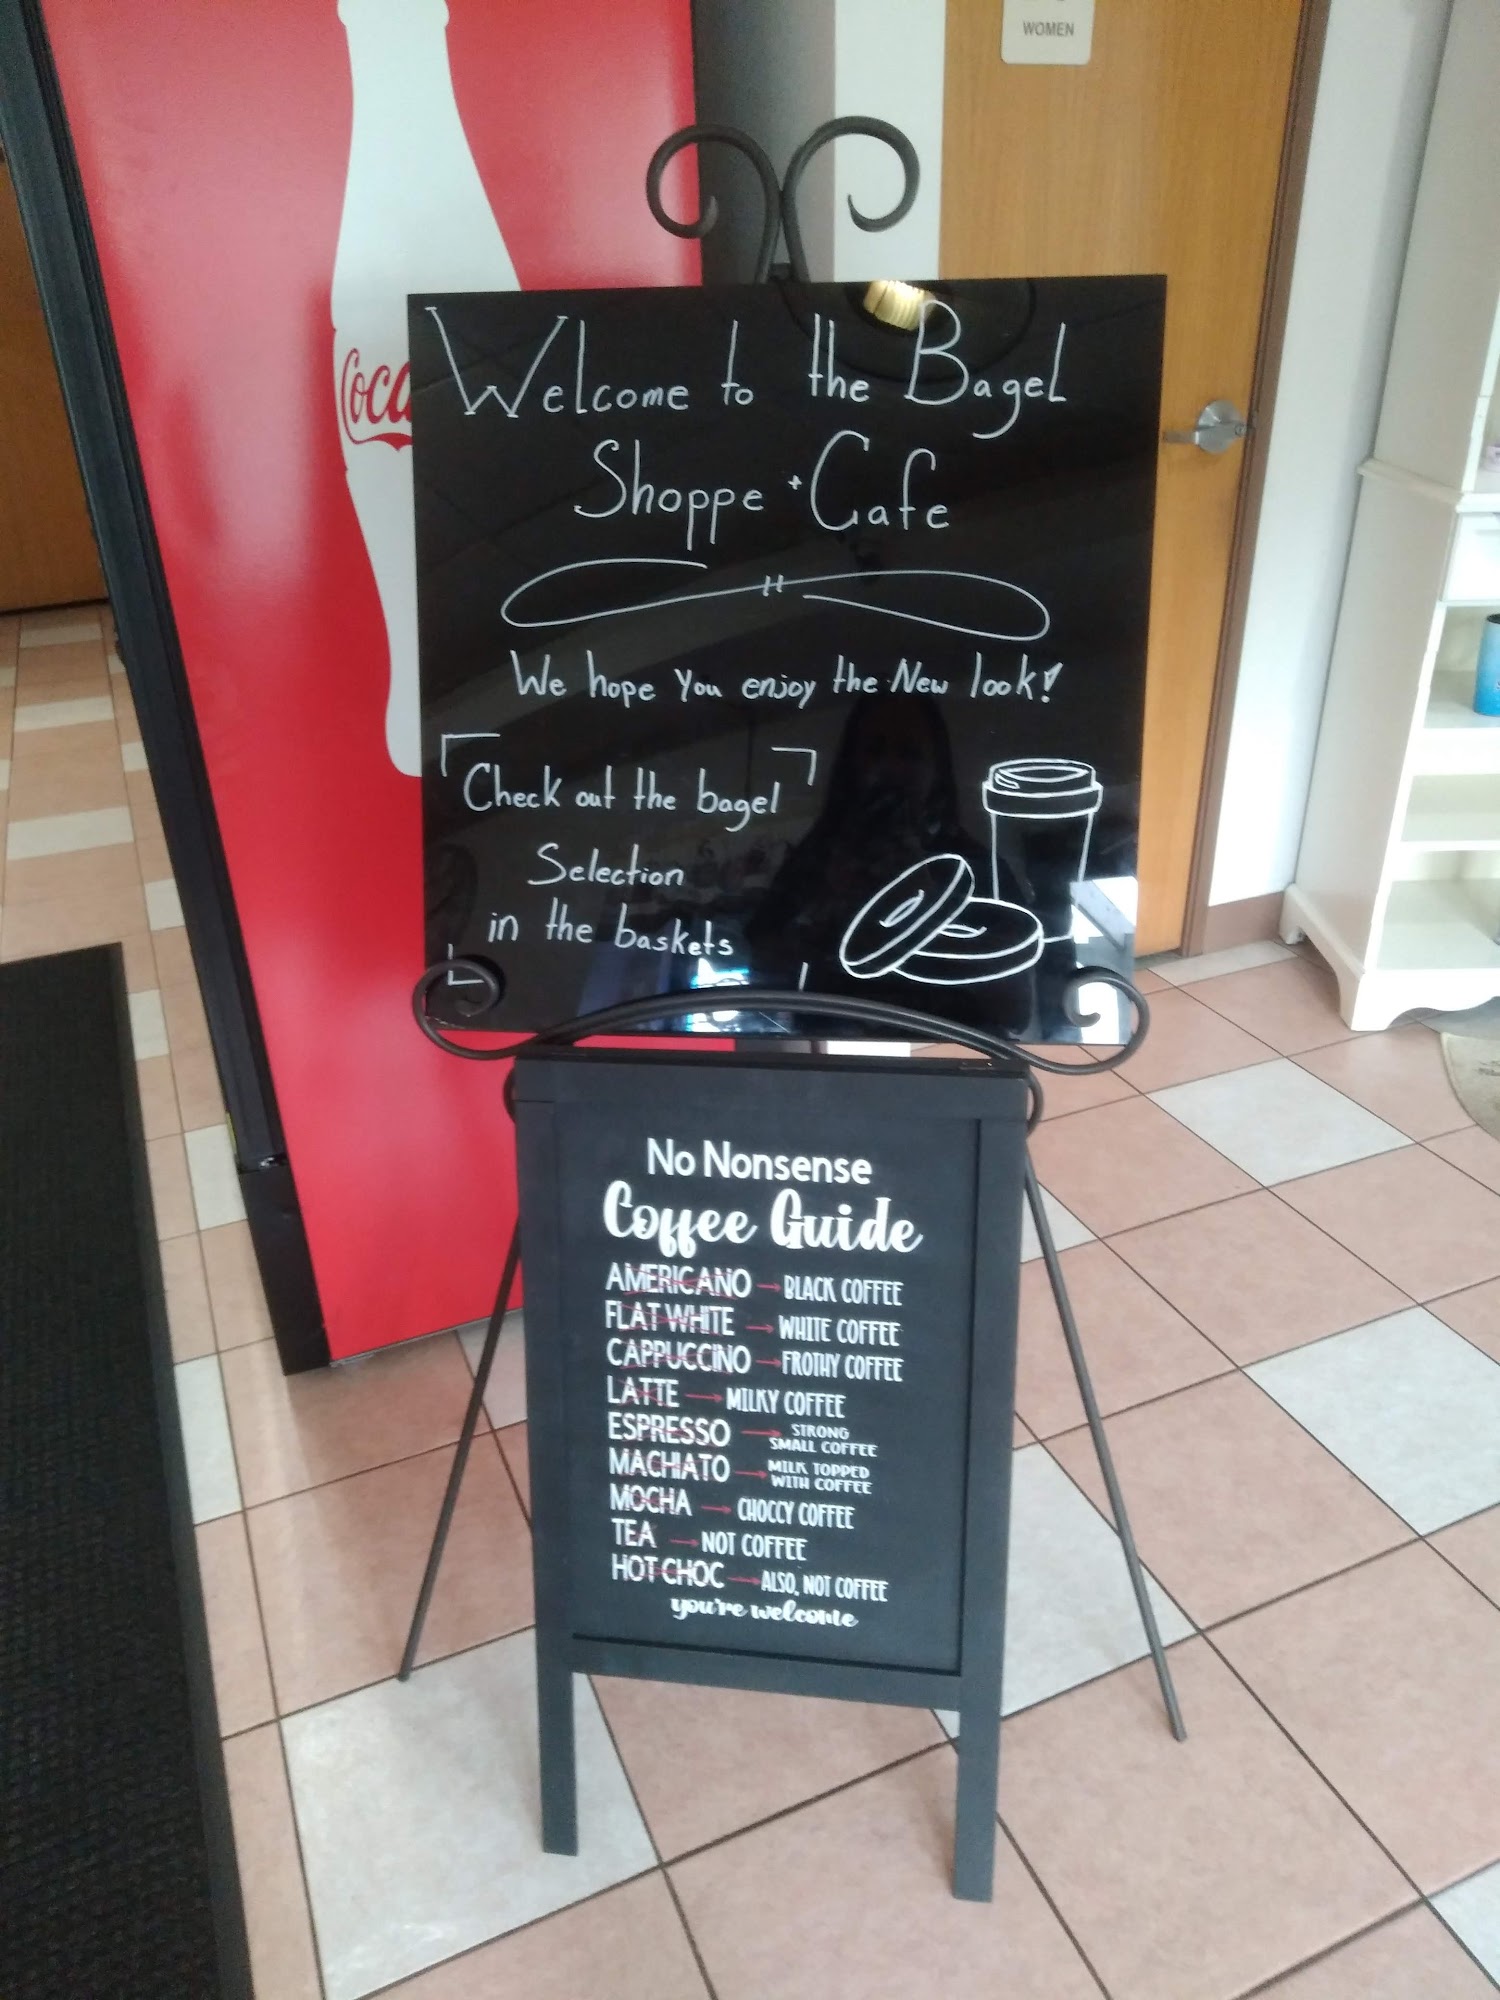 WOMEN
Coca
Welcome to the Bagel
Shoppe + Cafe
We hope you enjoy the New look!
Check out the bagel
Selection
in the baskets
No Nonsense
Coffee Guide
AMERICANO → BLACK COFFEE
FLAT WHITE → WHITE COFFEE
CAPPUCCINO → FROTHY COFFEE
LATTE → MILKY COFFEE
ESPRESSO → STRONG
SMALL COFFEE
MACHIATO → MILK TOPPED
WITH COFFEE
MOCHA → CHOCCY COFFEE
TEA → NOT COFFEE
HOT CHOC → ALSO, NOT COFFEE
you're welcome